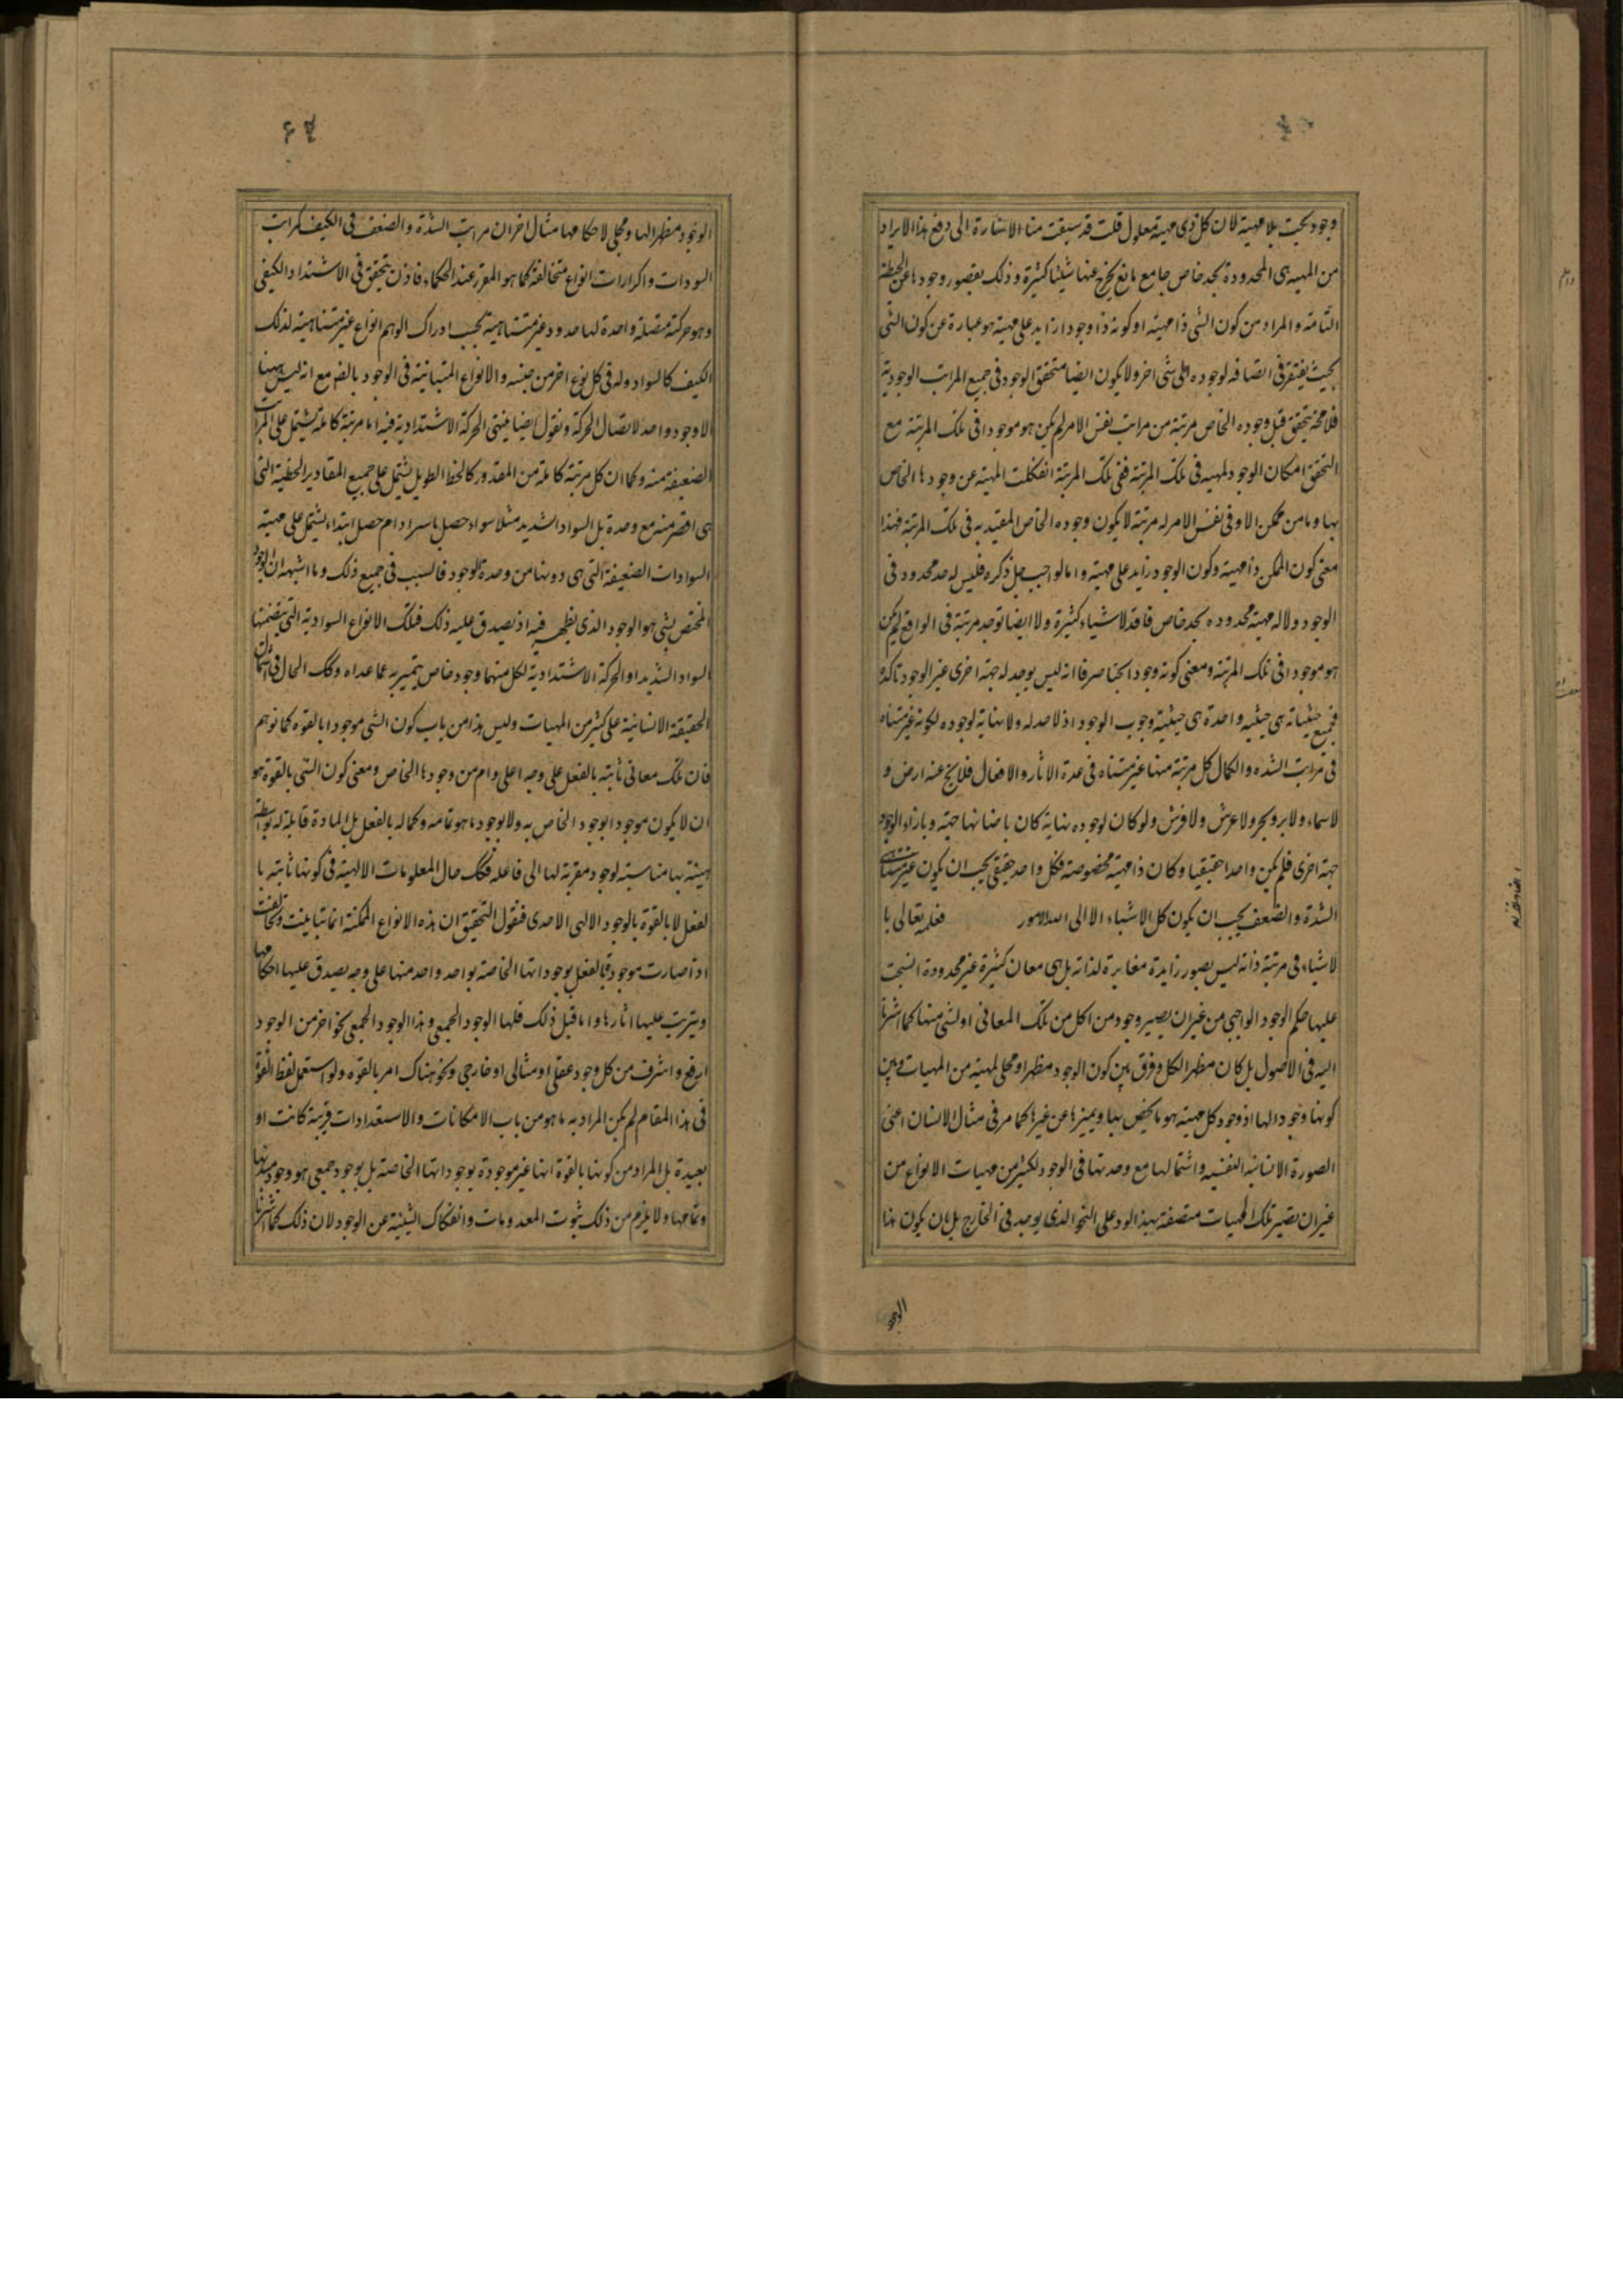 وجود بحت بلا مهية لان كل ذى مهية معلول قلت قد سبقت منا الاشارة الى دفع هذا الايراد
من المهية هى المحدودة بحد خاص جامع مانع يخرج عنها شيئا كثيرة وذلك بقصور وجودها عن الحيطة
التامة والمراد من كون الشى ذا مهية او كونه ذا وجود زايد على مهية هو عبارة عن كون الشى
بحيث يفتقر فى اتصافه لوجوده الى شى اخر ولا يكون ايضا متحقق الوجود فى جميع المراتب الوجودية
فلا محة يتحقق قبل وجوده الخاص مرتبة من مراتب نفس الامر لم يكن هو موجودا فى تلك المرتبة مع
التحقق امكان الوجود لمهيه فى تلك المرتبة ففى تلك المرتبة انفكلت المهية عن وجودها الخاص
بها وما من ممكن الا وفى نفس الامر له مرتبة لا يكون وجوده الخاص المقيد به فى تلك المرتبة فهذا
معنى كون الممكن ذا مهية وكون الوجود زايد على مهية واما الواجب جل ذكره فليس له حد محدود فى
الوجود ولا له مهية محدوده بحد خاص فاقد لاشياء كثيرة ولا ايضا توجد مرتبة فى الواقع لم يكن
هو موجودا فى تلك المرتبة ومعنى كونه وجودا بحتا صرفا انه ليس يوجد له جهة اخرى غير الوجود تاكده
فجميع حيثياته هى حيثيه واحدة هى حيثية وجوب الوجود اذ لا حد له ولا نهاية لوجوده لكونه غير متناه
فى مراتب الشده والكمال كل مرتبة منها غير متناه فى عدة الاثار والافعال فلا يخ عنه ارض و
لا سماء ولا بر وبحر ولا عرش ولا فرش ولو كان لوجوده نهاية كان باضانها جهة وبازاء الوجود
جهة اخرى فلم يكن واحدا حقيقيا وكان ذا مهية مخصوصة فكل واحد حقيقى يجب ان يكون غير متناهى
الشدة والضعف يجب ان يكون كل الاشياء الا الى الله الامور فعلمه تعالى با
لاشياء فى مرتبة ذاته ليس بصور زايدة مغايرة لذاته بل هى معان كثيرة غير محدودة انسحبت
عليها حكم الوجود الواجبى من غير ان يصير وجود من اكل من تلك المعانى او لشى منها كما اشرنا
اليه فى الاصول بل كان مظهر الكل وفرق بين كون الوجود مظهرا ومجلى لمهية من المهيات وبين
كونها وجودا لها اذ وجود كل مهية هو ما يخص بها ويميزها عن غيرها كما مر فى مثال الانسان اعنى
الصورة الانسانية النفسيه واشتمالها مع وحدتها فى الوجود لكثير من مهيات الانواع من
غير ان تصير تلك المهيات متصفة بهذا الود على النحو الذى يوجد فى الخارج بل بان يكون هذا
الوجود
الوجود مظهرا لها ومجلى لاحكامها مثال اخر ان مراتب الشدة والضعف فى الكيف كمراتب
السوادات والحرارات انواع متخالفة كما هو المقرر عند الحكماء فاذن يتحقق فى الاشتداد الكيفى
وهو حركة متصلة واحدة لها حدود غير متناهية بحسب ادراك الوهم انواع غير متناهية لذلك
الكيف كالسواد وله فى كل نوع اخر من جنسه والانواع المتباينة فى الوجود بالضه مع انه ليس هيهنا
الا وجود واحد لاتصال الحركة ونقول ايضا ينتهى الحركة الاشتدادية فيه اما مرتبة كاملة يشتمل على المراتب
الضعيفة منه وكما ان كل مرتبة كاملة من المقدور كالخط الطويل يشتمل على جميع المقادير الخطية التى
هى اقصر منه مع وحدة بل السواد الشديد مثلا سواء حصل باسراد ام حصل ابتداء يشتمل على مهية
السوادات الضعيفة التى هى دونها من وحدة الوجود فالسبب فى جميع ذلك وما اشبهه ان الوجود
المختص بشى هو الوجود الذى يظهر فيه اذ يصدق عليه ذلك فتلك الانواع السوادية التى يتضمنها
السواد الشديد او الحركة الاشتدادية لكل منها وجود خاص يتميز به عما عداه وكك الحال فى اشتمال
الحقيقة الانسانية على كثير من المهيات وليس هذا من باب كون الشى موجودا بالقوه كما توهم
فان تلك معانى ثابتة بالفعل على وجه اعلى وام من وجودها الخاص ومعنى كون الشى بالقوة هو
ان لا يكون موجودا بوجود الخاص به ولا بوجود ما هو تمامه وكماله بالفعل بل المادة قابلة له بواسطة
هيئة بها مناسبته لوجود مقربة لها الى فاعله فكك حال المعلومات الالهية فى كونها ثابتة با
لفعل لا بالقوة بالوجود الالهى الاحدى فنقول التحقيق ان هذه الانواع الممكنة انما تباينت وتخالفت
اذا صارت موجودة بالفعل بوجوداتها الخاصة بواحد واحد منها على وجه يصدق عليها احكامها
ويترتب عليها اثارها واما قبل ذلك فلها الوجود الجمعى وهذا الوجود الجمعى نحو اخر من الوجود
ارفع واشرف من كل وجود عقلى او مثالى او خارجى ونحو هناك امر بالقوه ولو استعمل لفظ القوة
فى هذا المقام لم يكن المراد به ما هو من باب الامكانات والاستعدادات قريبة كانت او
بعيدة بل المراد من كونها بالقوة انها غير موجودة بوجوداتها الخاصة بل بوجود جمعى هو وجود مبدئها
وتمامها ولا يلزم من ذلك ثبوت المعدومات وانفكاك الشيئية عن الوجود لان ذلك كما اشرنا